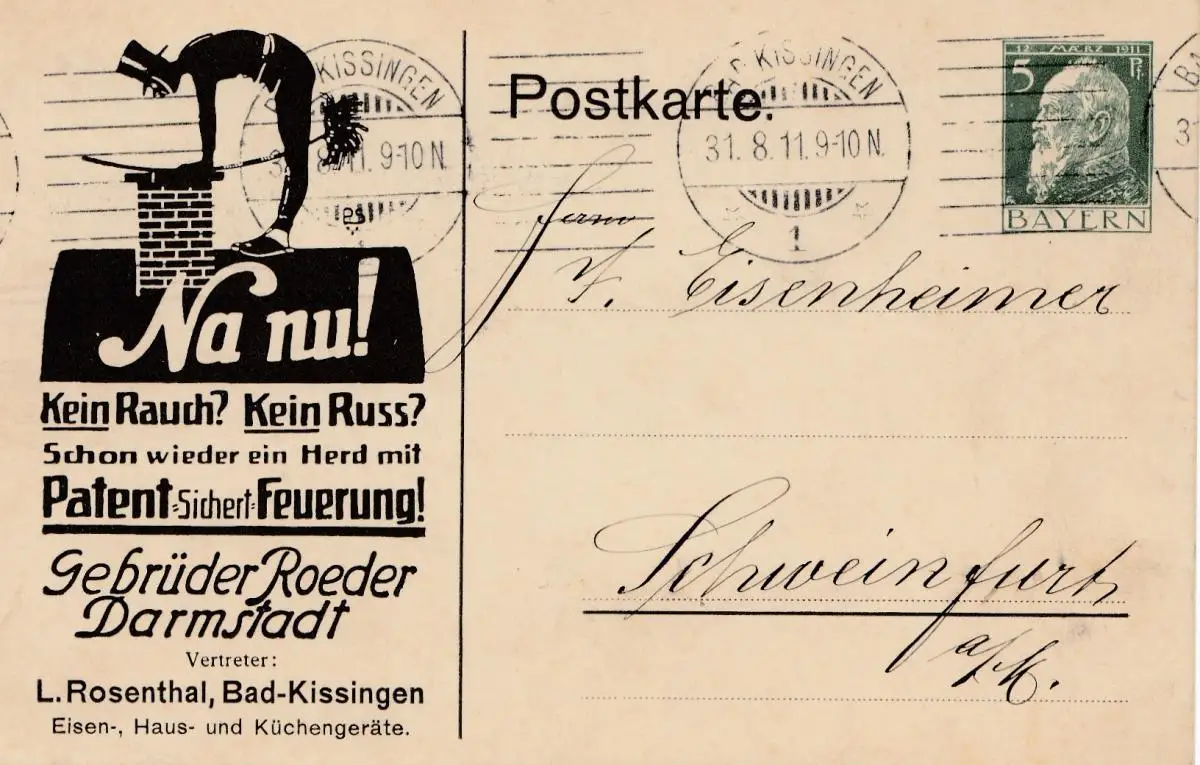 Na nu!
Kein Rauch? Kein Russ?
Schon wieder ein Herd mit
Patent-Sichert-Feuerung!
Gebrüder Roeder
Darmstadt
Vertreter:
L. Rosenthal, Bad-Kissingen
Eisen-, Haus- und Küchengeräte.
BAD KISSINGEN
31. 8. 11. 9-10 N.
Postkarte.
BAD KISSINGEN
31. 8. 11. 9-10 N.
1
12. MÄRZ 1911
5 Pf
BAYERN
F. Eisenheimer
Schweinfurt
a/M.